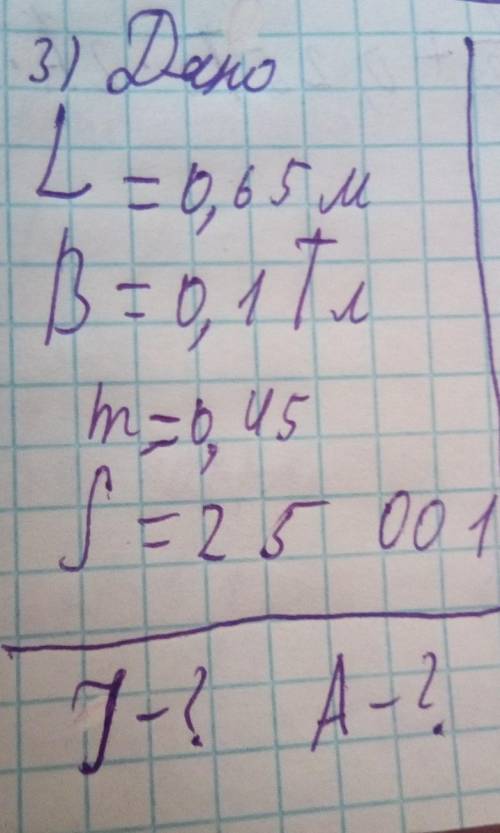 3) Дано
L = 0,65 м
B = 0,1 Тл
m = 0,45
S = 25 001
J - ? A - ?